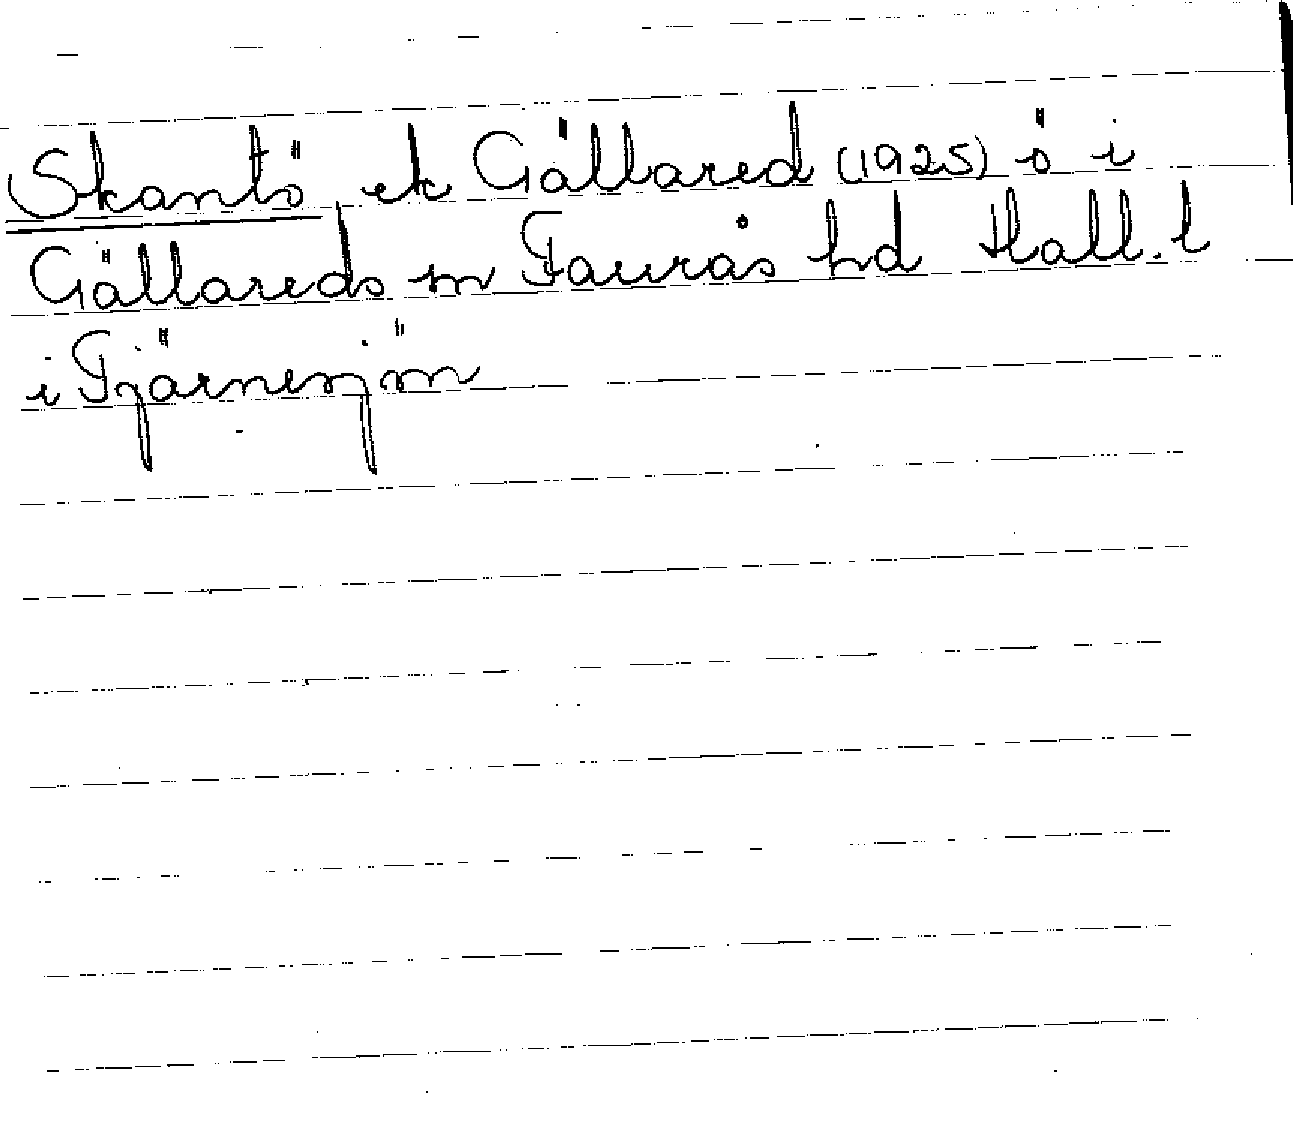 Skantö ek Gällared (1925) ö i
Gällareds sn Faurås hd Hall. l
i Tjärnesjön